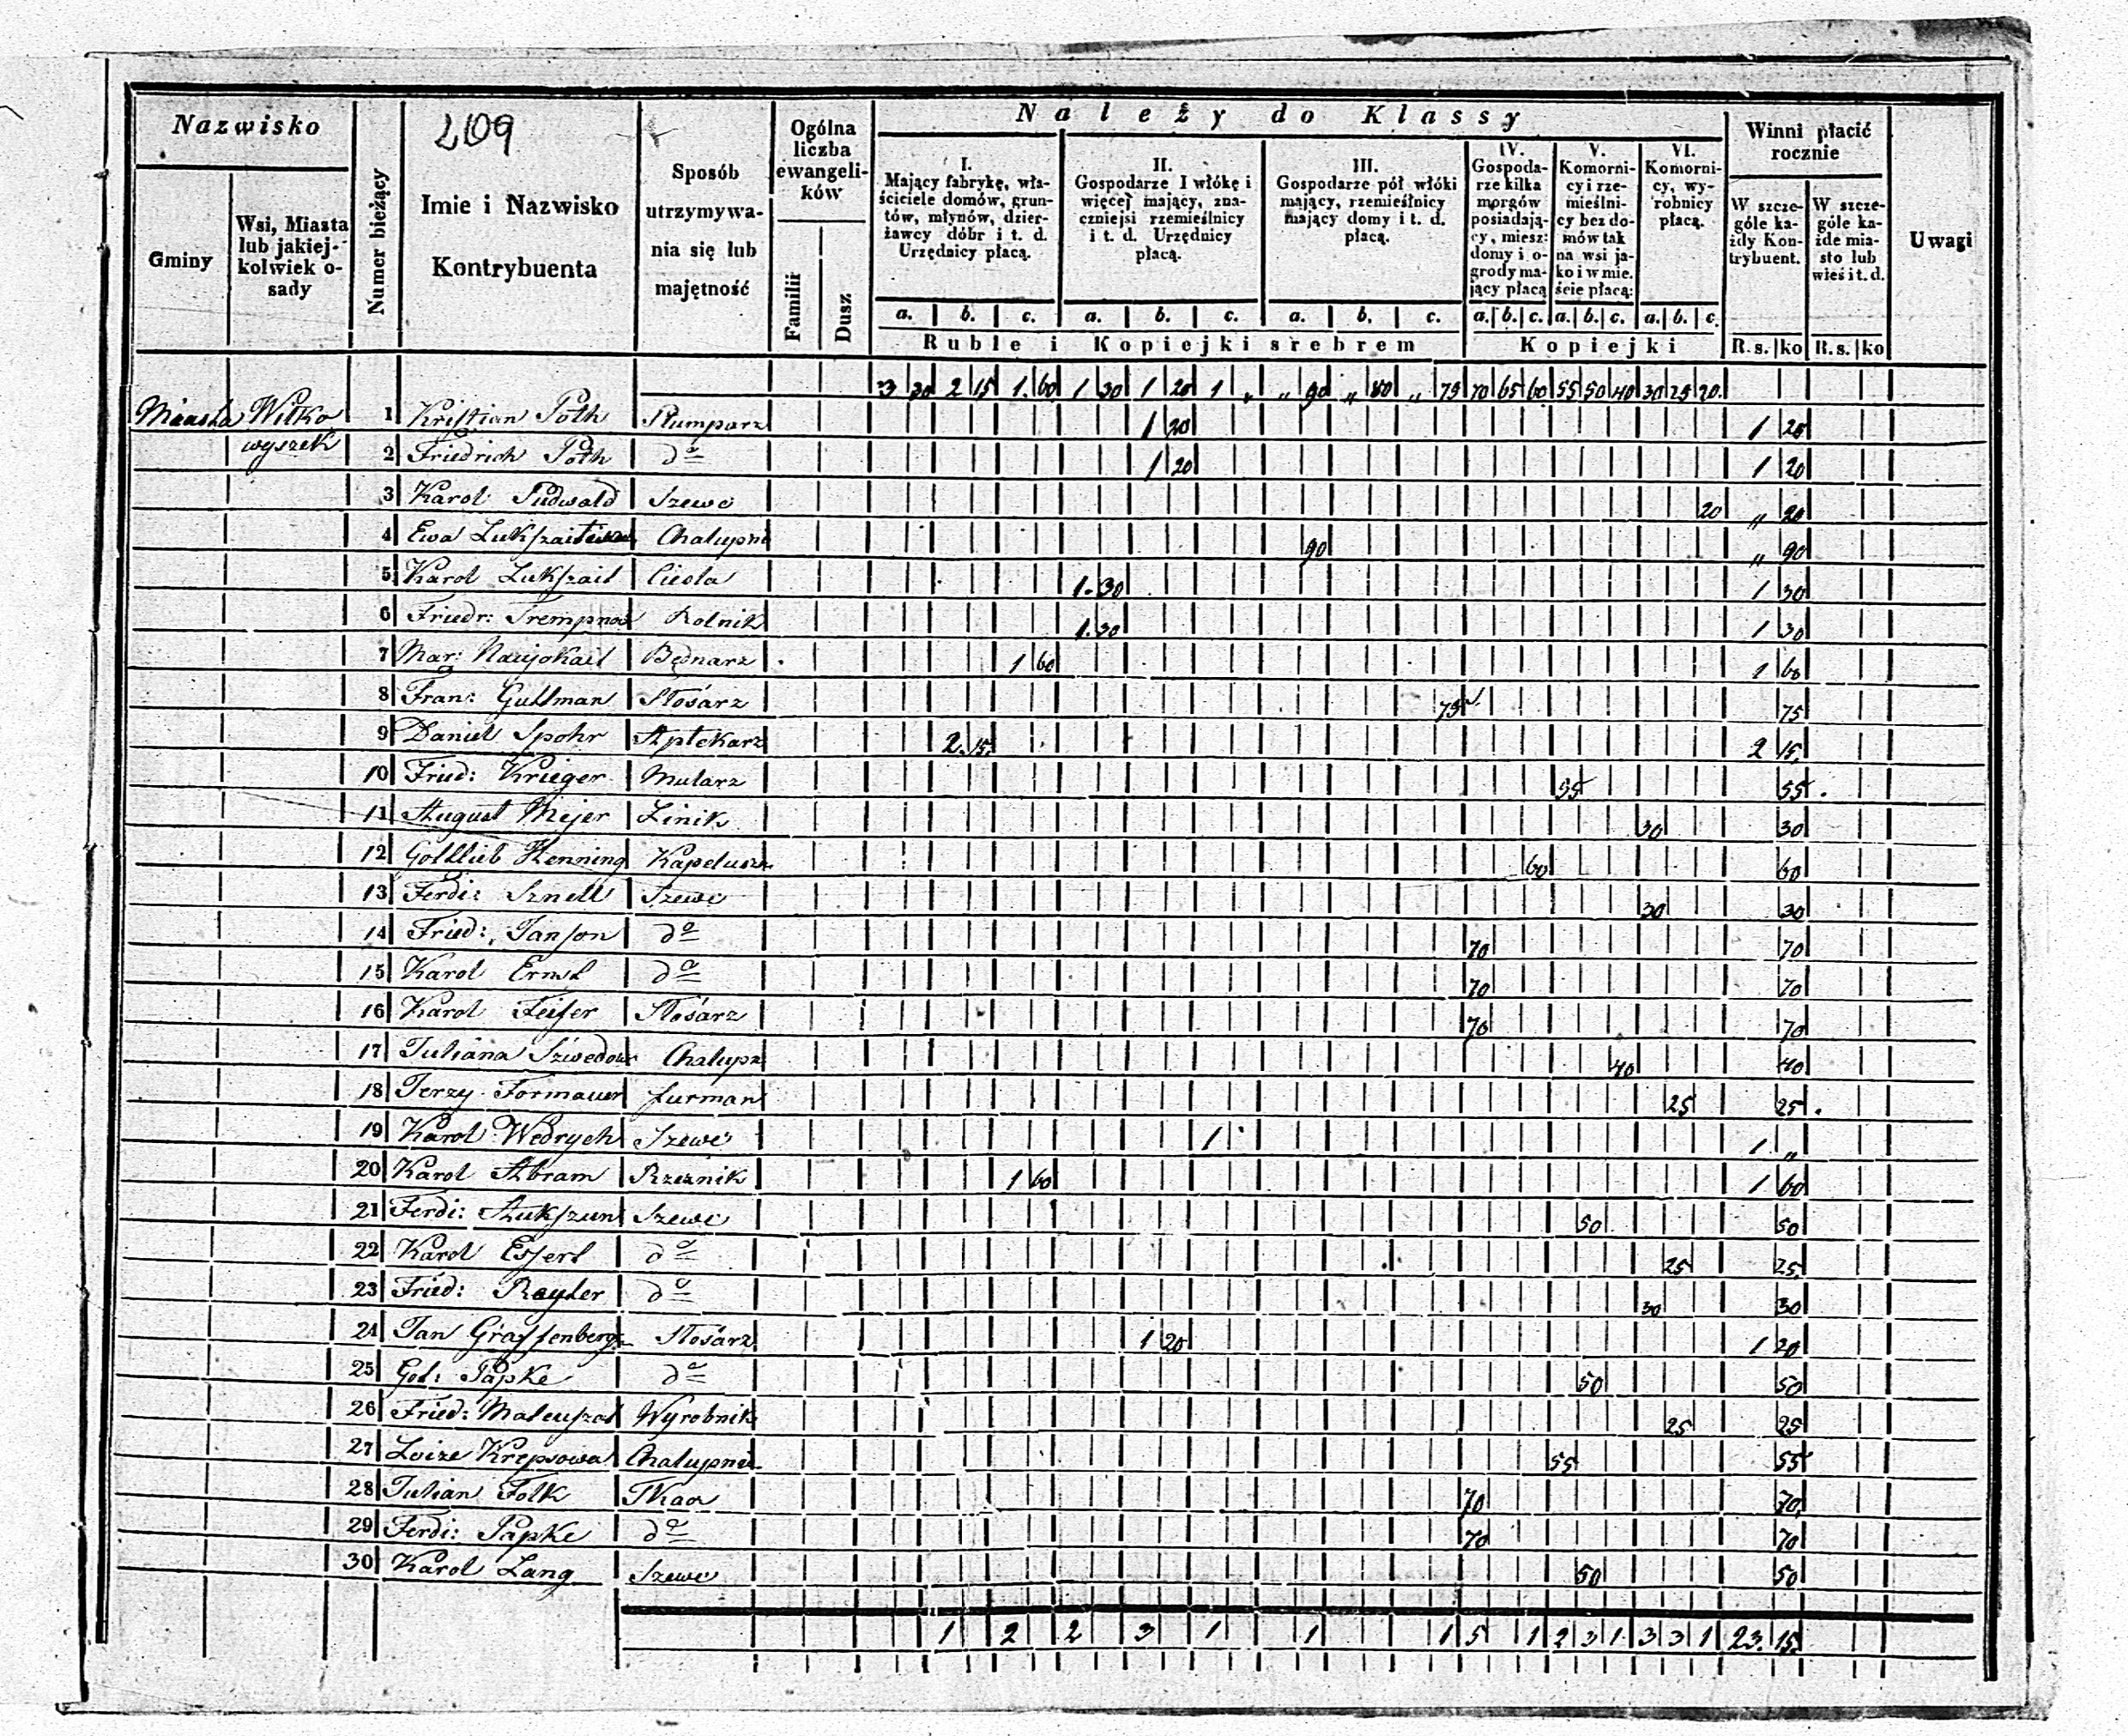 2109
Nazwisko
Gminy
Wsi, Miasta lub jakiej-kolwiek o-sady
Numer bieżący
Imie i Nazwisko Kontrybuenta
Sposób utrzymywa-nia się lub majętność
Ogólna liczba ewangeli-ków
Familii
Dusz
Należy do Klassy
I. Mający fabrykę, wła-ściciele domów, grun-tów, młynów, dzier-żawcy dóbr i t. d. Urzędnicy płacą.
II. Gospodarze 1 włókę i więcej mający, zna-czniejsi rzemieślnicy i t. d. Urzędnicy płacą.
III. Gospodarze pół włóki mający, rzemieślnicy mający domy i t. d. płacą.
IV. Gospoda-rze kilka morgów posiadają-cy, miesz: domy i o-grody ma-jący płacą
V. Komorni-cy i rze-mieślni-cy bez do-mów tak na wsi ja-ko i w mie. ście płacą:
VI. Komorni-cy, wy-robnicy płacą.
Winni płacić rocznie
W szcze-góle ka-żdy Kon-trybuent.
W szcze-góle ka-żde mia-sto lub wieś i t. d.
Uwagi
a. b. c. a. b. c. a. b. c. a. b. c. a. b. c. a. b. c.
Ruble i Kopiejki srebrem Kopiejki R.s. ko R.s. ko
3 30 2 15 1. 60 1 30 1 20 1 „ „ 90 „ 80 „ 75 70 65 60 55 50 40 30 25 20.
Miasta Wiłko 1 Kristian Poth 1 20 1 20
wyszek 2 Friedrich Poth do 1 20 1 20
3 Karol Szewc 20 „ 20
4 Ewa Chałupni 90 „ 90
5 Karol Lukszait Ciesla 1. 30 1 30
6 Friedr: Rolnik 1. 30 1 30
7 Mar: Naujokait Bednarz 1 60 1 60
8 Fran: Guttman Stósarz 75 75
9 Daniel Spohr Aptekarz 2. 15. 2 15.
10 Fried: Krieger Mularz 55 55.
11 August Mejer 30 30
12 Gottlieb Henning Kapelusz 60 60
13 Ferdi: Sznell Szewc 30 30
14 Fried: Janson do 70 70
15 Karol Ernst do 70 70
16 Karol Feifer Stósarz 70 70
17 Juliana Szwedow Chałupn 40 40
18 Jerzy Formauer furman 25 25.
19 Karol Wedrych Szewc 1 1 „
20 Karol Abram Rzeznik 1 60 1 60
21 Ferdi: Szewc 50 50
22 Karol Essert do 25 25.
23 Fried: Reyter do 30 30
24 Jan Graffenberg Stósarz 1 20 1 20
25 Got: Papke do 50 50
26 Fried: Wyrobnik 25 25
27 Loize Krepsowa Chałupni 55 55
28 Julian Folk Tkacz 70 70.
29 Ferdi: Papke do 70 70
30 Karol Lang Szewc 50 50
1 2 2 3 1 1 1 5 1 2 3 1 3 3 1 23. 15.